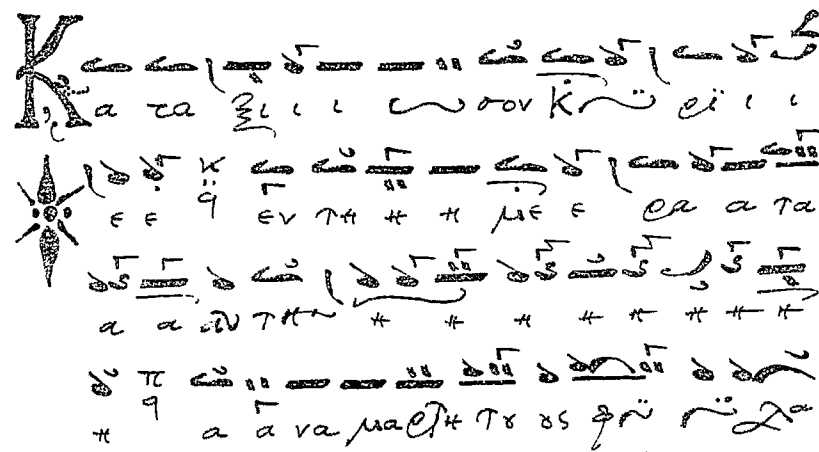 Κα τα ξι ι ι ω σον Κυ ρϊ ι ι
ε ε κ q εν τη η η με ε ρα α τα
α α αυ τη η η η η η η η
η π q α α να μα ρτη τȣ ȣς φϋ ϋ λα